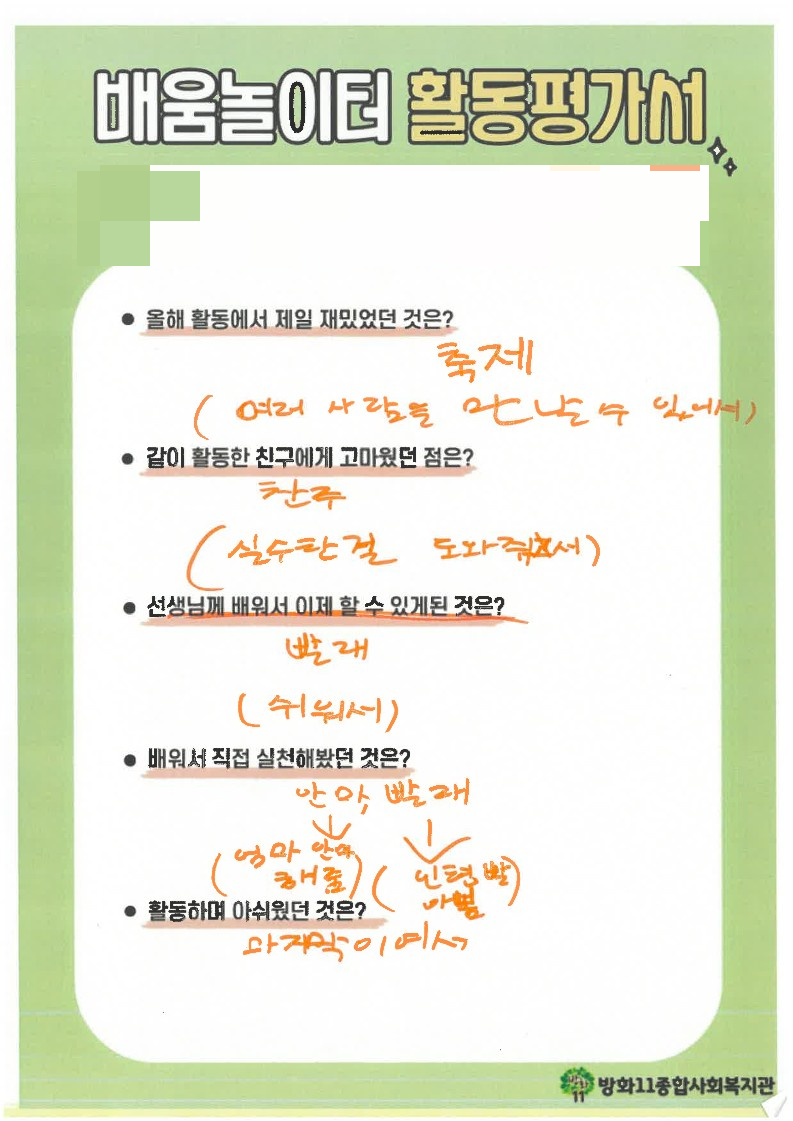 배움놀이터 활동평가서
● 올해 활동에서 제일 재밌었던 것은?
축제
( 여러 사람을 만날 수 있어서)
● 같이 활동한 친구에게 고마웠던 점은?
찬주
(실수한걸 도와줘서)
● 선생님께 배워서 이제 할 수 있게된 것은?
빨래
( 쉬워서)
● 배워서 직접 실천해봤던 것은?
안마, 빨래
(엄마 안마 해줌) (인형 빨아봄
● 활동하며 아쉬웠던 것은?
마지막이여서
방화11 방화11종합사회복지관